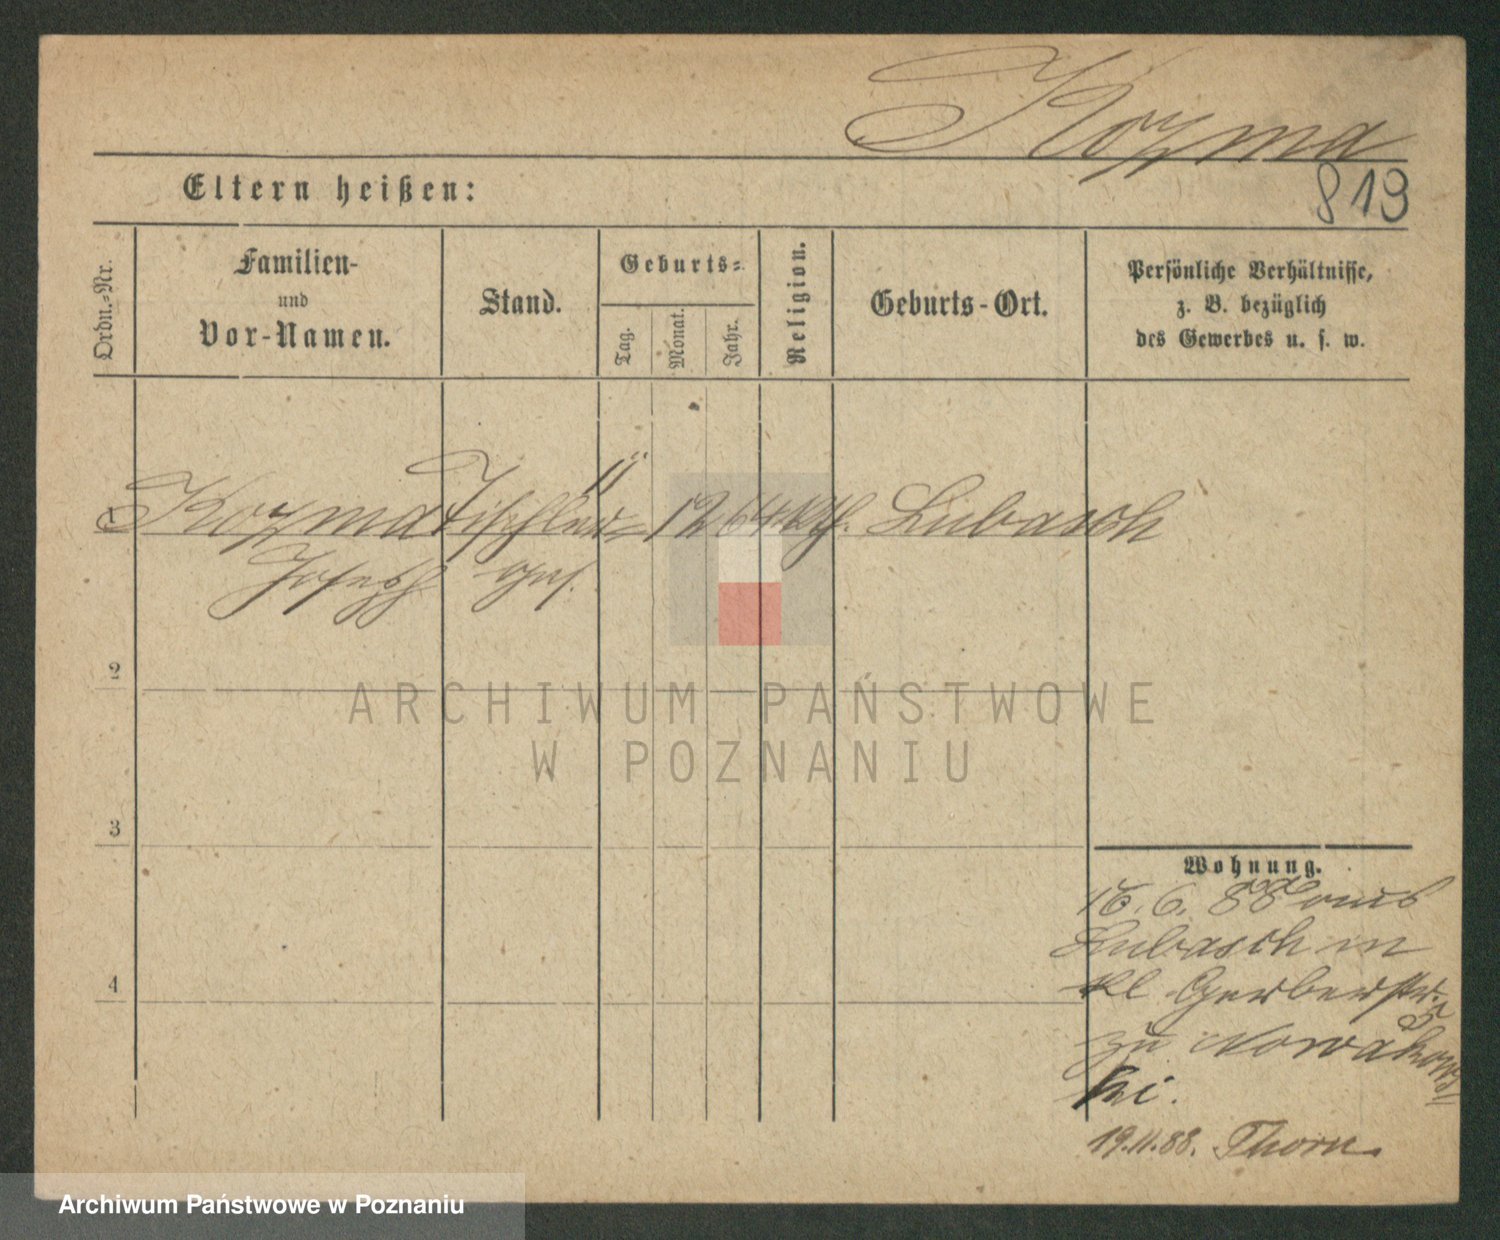 Kozma
819
Eltern heißen:
Ordn.-Nr.
Familien-
und
Vor-Namen.
Stand.
Geburts-
Tag.
Monat.
Jahr.
Religion.
Geburts-Ort.
Persönliche Verhältnisse,
z. B. bezüglich
des Gewerbes u. s. w.
1 Kozma Tischler= 12 64 kth. Lubasch
Joseph ges.
2
3
4
Wohnung.
16. 6. 88 aus
Lubasch in
Kl Gerberstr.
zu Nowakows=
ki.
19.11.88. Thorn
ARCHIWUM PAŃSTWOWE
W POZNANIU
Archiwum Państwowe w Poznaniu